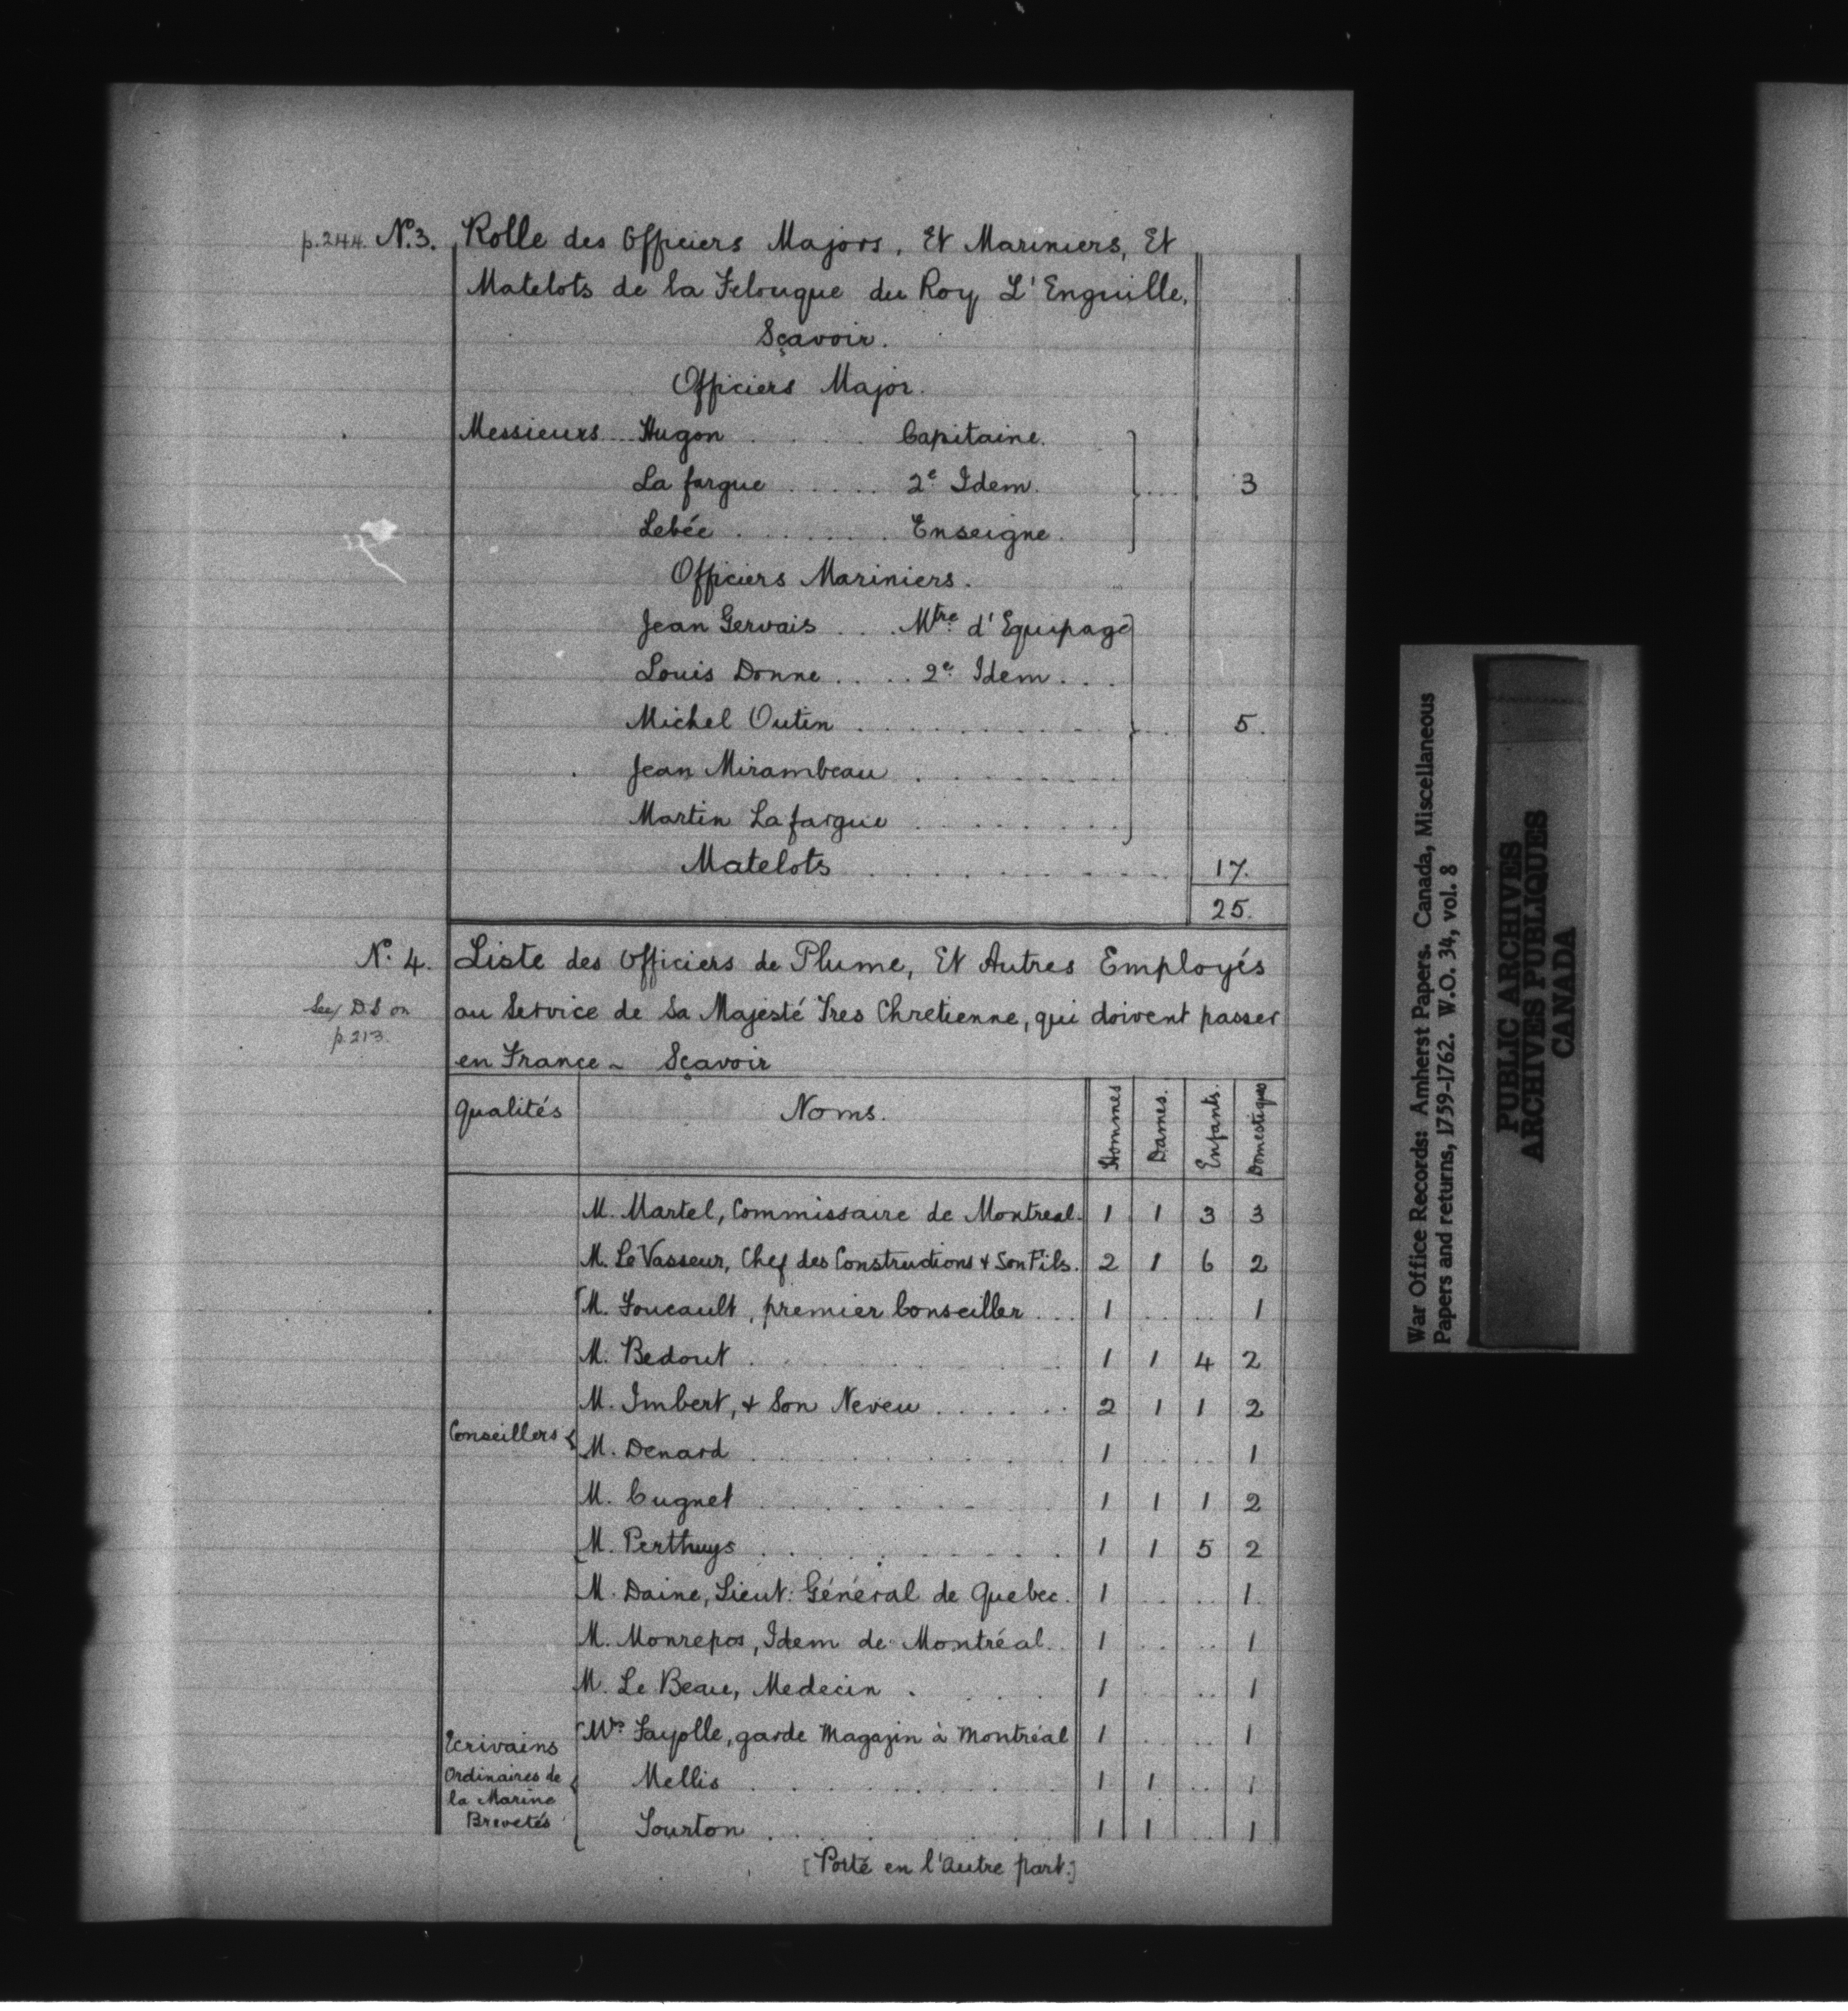 p.244. N.º3. Rolle des Officiers Majors, Et Mariniers, Et
Matelots de la Felouque du Roy L'Enguille,
Sçavoir.
Officiers Major.
Messieurs Hugon . . . . . Capitaine.
La fargue . . . . . 2e Idem. . . . 3
Lebée . . . . . . . Enseigne.
Officiers Mariniers.
Jean Gervais . . . Mtre d'Equipage
Louis Donne . . . . 2e Idem . . .
Michel Outin . . . . . . . . . . 5.
Jean Mirambeau . . . . . . . .
Martin Lafargue . . . . . . . .
Matelots . . . . . . . . . . . 17.
25.
N.º 4. Liste des Officiers de Plume, Et Autres Employés
See D.S on
p.213.
au Service de Sa Majesté Tres Chretienne, qui doivent passer
en France - Sçavoir
Qualités Noms. Hommes Dames. Enfants. Domestiques
M. Martel, Commissaire de Montreal. 1 1 3 3
M. Le Vasseur, Chef des Constructions & Son Fils. 2 1 6 2
M. Foucault, premier Conseiller . . . 1 . . . . 1
M. Bedout . . . . . . . . 1 1 4 2
M. Imbert, & Son Neveu . . . . . . 2 1 1 2
Conseillers
M. Denard . . . . . . . . 1 . . . . 1
M. Cugnet . . . . . . . 1 1 1 2
M. Perthuys . . . . . . . . 1 1 5 2
M. Daine, Lieut: Général de Quebec. 1 . . . . 1.
M. Monrepos, Idem de Montréal. . 1 . . . . 1
M. Le Beau, Medecin . . . . 1 . . . . 1
Ecrivains
Ordinaires de
la Marine
Brevetés
Mrs Fayolle, garde Magazin à Montréal 1 . . . . 1
Mellis . . . . . . . . 1 1 . . 1
Sourton . . . . . . 1 1 . . 1
[Porté en l'Autre part.]
War Office Records: Amherst Papers. Canada, Miscellaneous
Papers and returns, 1759-1762. W.O. 34, vol. 8
PUBLIC ARCHIVES
ARCHIVES PUBLIQUES
CANADA